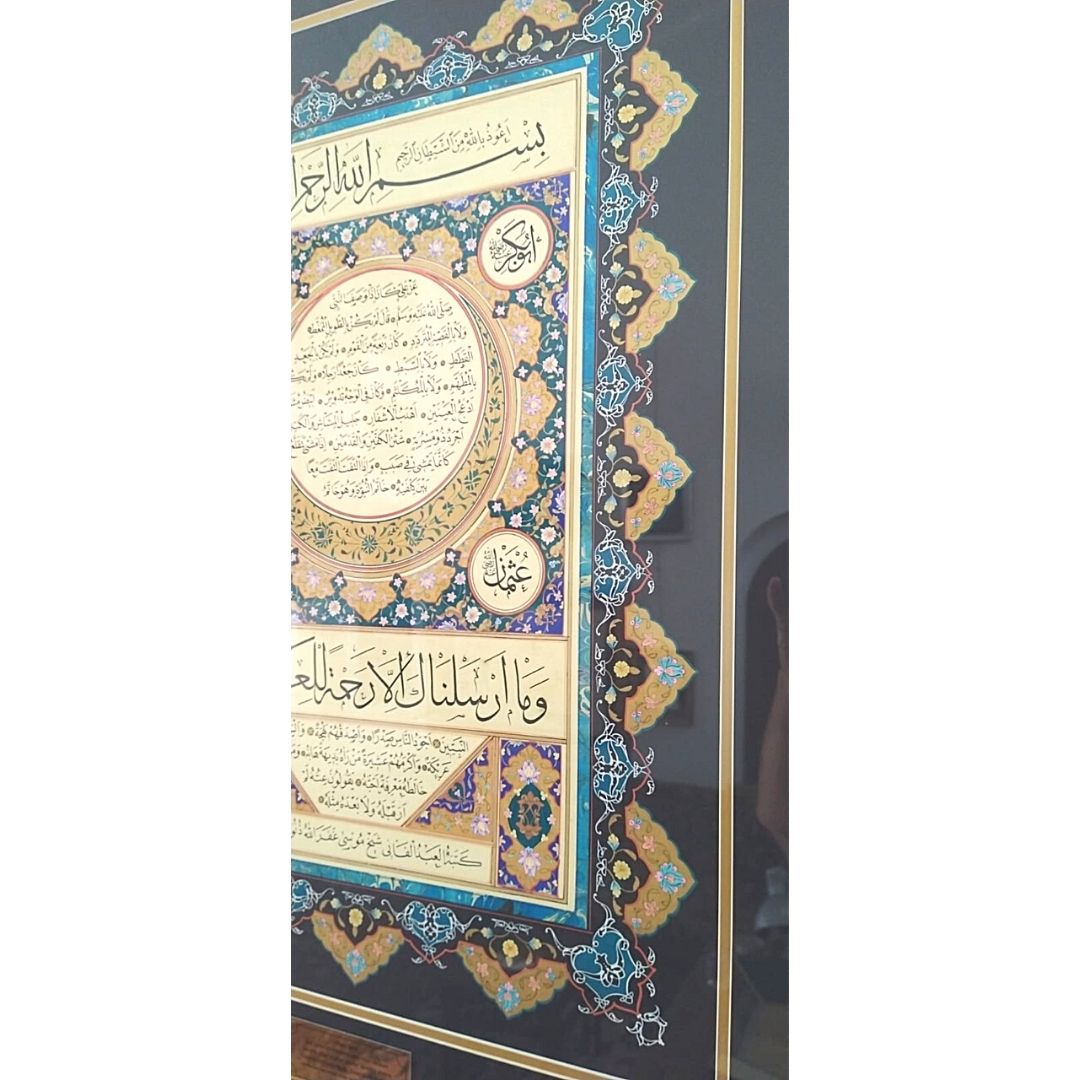 اَعُوذُ بِاللهِ مِنَ الشَّيْطَانِ الرَّجِيمِ
بِسْمِ اللهِ الرَّحْمٰ
اَبُوبَكْر رضي الله عنه
عَنْ عَلِيٍّ كَانَ اِذَا وَصَفَ النَّبِيَّ
صَلَّى اللهُ عَلَيْهِ وَسَلَّمَ قَالَ لَمْ يَكُنْ بِالطَّوِيلِ الْمُمَّغِطِ
وَلَا بِالْقَصِيرِ الْمُتَرَدِّدِ كَانَ رَبْعَةً مِنَ الْقَوْمِ وَلَمْ يَكُنْ بِالْجَعْدِ
الْقَطَطِ وَلَا بِالسَّبِطِ كَانَ جَعْدًا رَجِلًا وَلَمْ يَك
بِالْمُطَهَّمِ وَلَا بِالْمُكَلْثَمِ وَكَانَ فِي الْوَجْهِ تَدْوِيرٌ اَبْيَضُ
اَدْعَجُ الْعَيْنَيْنِ اَهْدَبُ الْاَشْفَارِ جَلِيلُ الْمُشَاشِ وَالْكَتَ
اَجْرَدُ ذُو مَسْرُبَةٍ شَثْنُ الْكَفَّيْنِ وَالْقَدَمَيْنِ اِذَا مَشٰى
كَاَنَّمَا يَمْشِي فِي صَبَبٍ وَاِذَا الْتَفَتَ الْتَفَتَ مَعًا
بَيْنَ كَتِفَيْهِ خَاتَمُ النُّبُوَّةِ وَهُوَ خَاتَمُ
عُثْمَان
وَمَا اَرْسَلْنَاكَ اِلَّا رَحْمَةً لِلْعَ
النَّبِيِّينَ اَجْوَدُ النَّاسِ صَدْرًا وَاَصْدَقُهُمْ لَهْجَةً
عَرِيكَةً وَاَكْرَمُهُمْ عَشِيرَةً مَنْ رَآهُ بَدِيهَةً هَابَهُ
خَالَطَهُ مَعْرِفَةً اَحَبَّهُ يَقُولُ نَاعِتُهُ لَمْ
اَرَ قَبْلَهُ وَلَا بَعْدَهُ مِثْلَهُ
كَتَبَهُ الْعَبْدُ الْفَانِي شيخ مُوسٰى غَفَرَ اللهُ